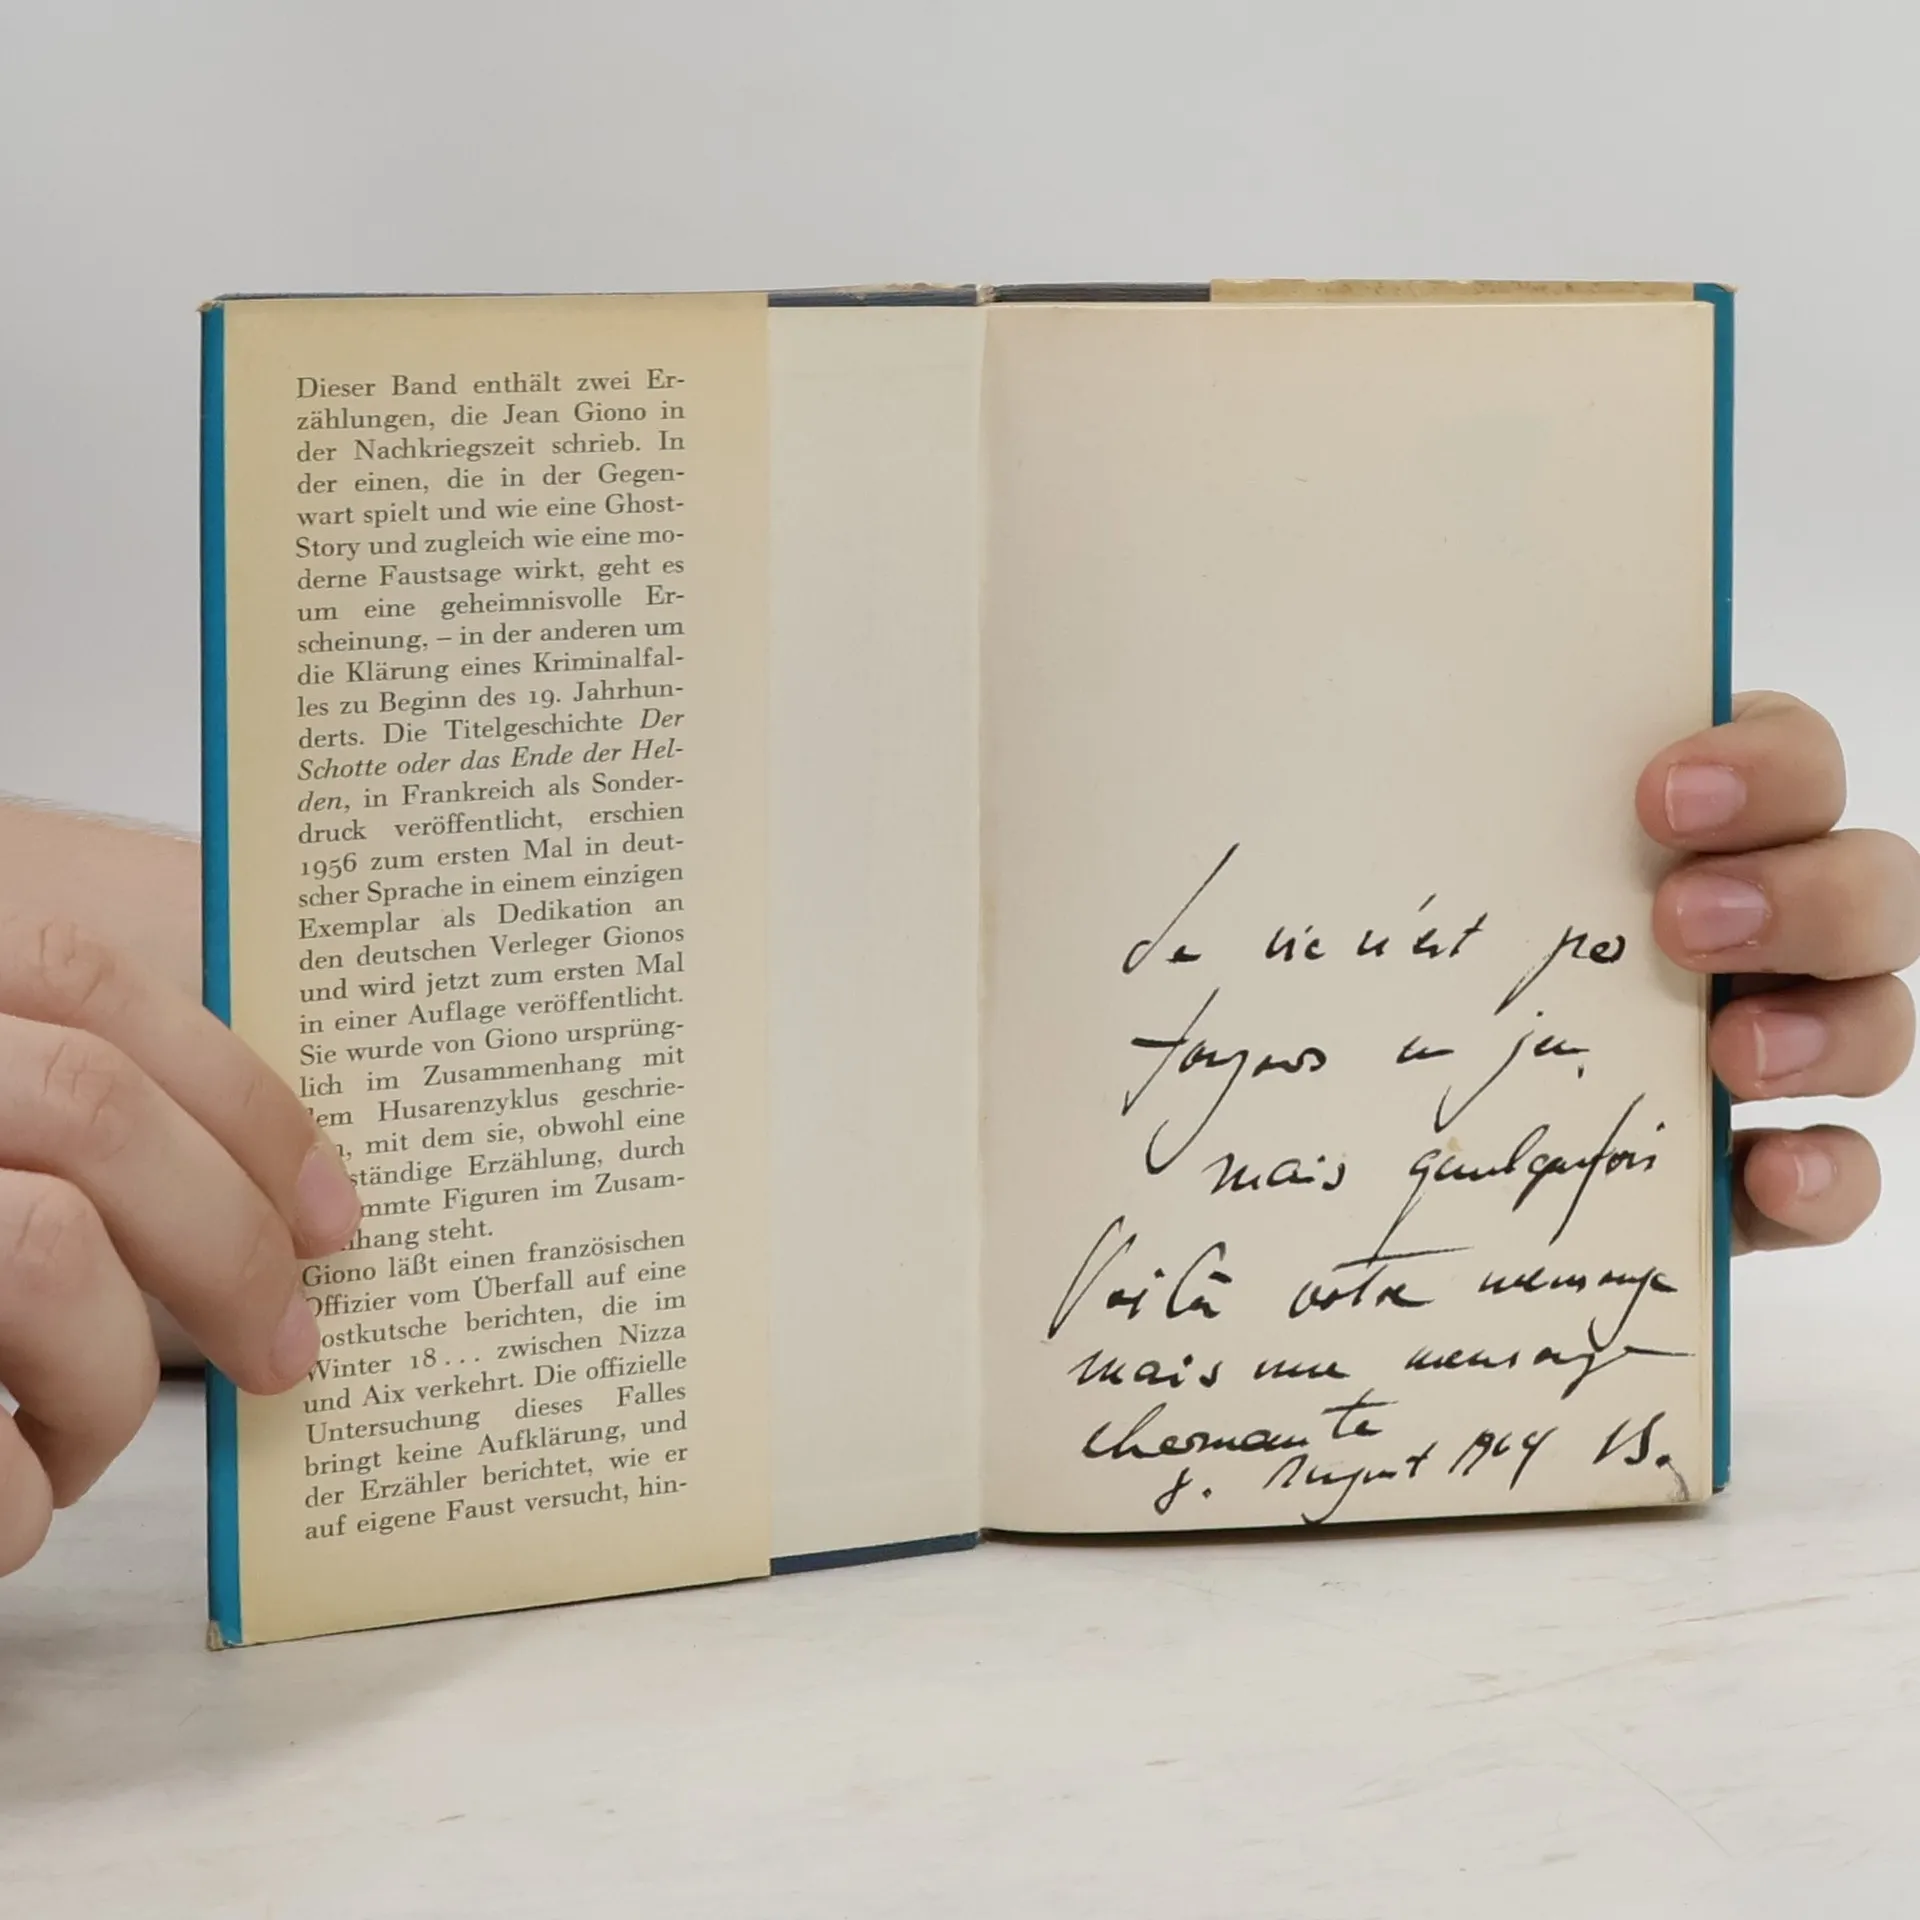 Dieser Band enthält zwei Er-
zählungen, die Jean Giono in
der Nachkriegszeit schrieb. In
der einen, die in der Gegen-
wart spielt und wie eine Ghost-
Story und zugleich wie eine mo-
derne Faustsage wirkt, geht es
um eine geheimnisvolle Er-
scheinung, – in der anderen um
die Klärung eines Kriminalfal-
les zu Beginn des 19. Jahrhun-
derts. Die Titelgeschichte Der
Schotte oder das Ende der Hel-
den, in Frankreich als Sonder-
druck veröffentlicht, erschien
1956 zum ersten Mal in deut-
scher Sprache in einem einzigen
Exemplar als Dedikation an
den deutschen Verleger Gionos
und wird jetzt zum ersten Mal
in einer Auflage veröffentlicht.
Sie wurde von Giono ursprüng-
lich im Zusammenhang mit
em Husarenzyklus geschrie-
, mit dem sie, obwohl eine
ständige Erzählung, durch
mmte Figuren im Zusam-
hang steht.
Giono läßt einen französischen
Offizier vom Überfall auf eine
ostkutsche berichten, die im
Winter 18... zwischen Nizza
und Aix verkehrt. Die offizielle
Untersuchung dieses Falles
bringt keine Aufklärung, und
der Erzähler berichtet, wie er
auf eigene Faust versucht, hin-
La vie n'est pas
toujours un jeu,
mais quelquefois
Voilà votre mensonge
mais une mensonge
charmante
8. August 1964 B.